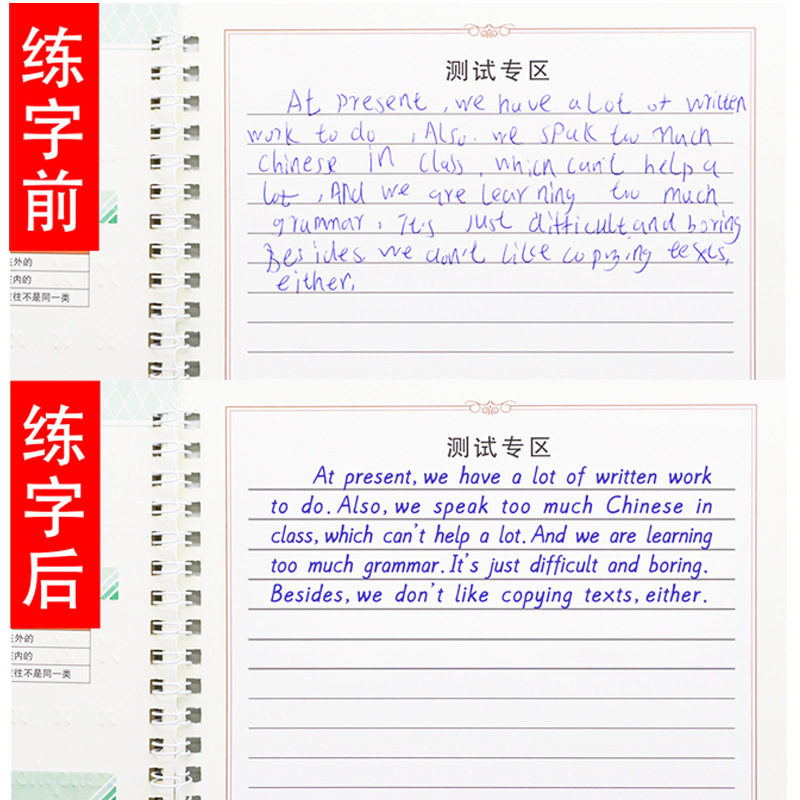 练字前
测试专区
At present, we have a lot of written
work to do , Also. we speak too much
chinese in class, which can't help a
lot , And we are learning too much
grammar, It's just difficult and boring
Besides we don't like copying texts,
either,
在外的
在内的
往往不是同一类
练字后
测试专区
At present, we have a lot of written work
to do. Also, we speak too much Chinese in
class, which can't help a lot. And we are learning
too much grammar. It's just difficult and boring.
Besides, we don't like copying texts, either.
在外的
在内的
往往不是同一类